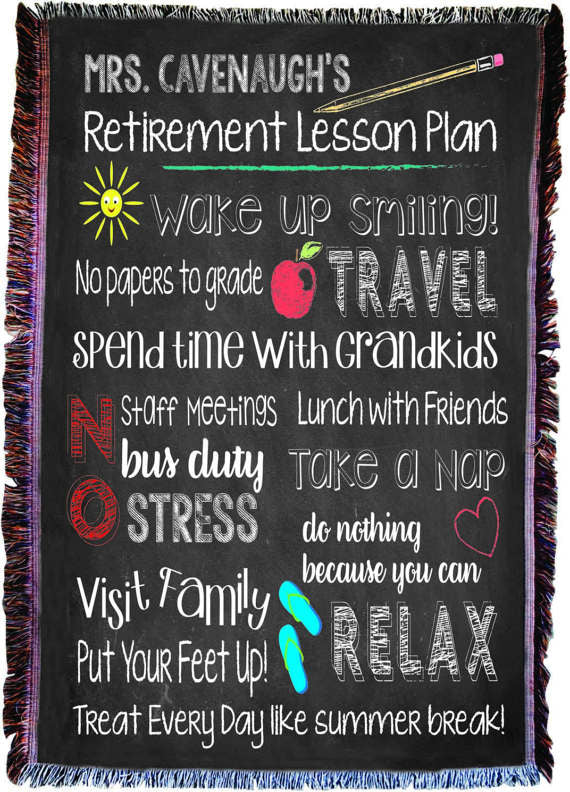 MRS. CAVENAUGH'S
Retirement Lesson Plan
wake up smiling!
No papers to grade
TRAVEL
spend time with Grandkids
NO
Staff Meetings
bus duty
STRESS
Lunch with Friends
Take a Nap
do nothing
because you can
Visit Family
Put Your Feet Up!
RELAX
Treat Every Day like summer break!